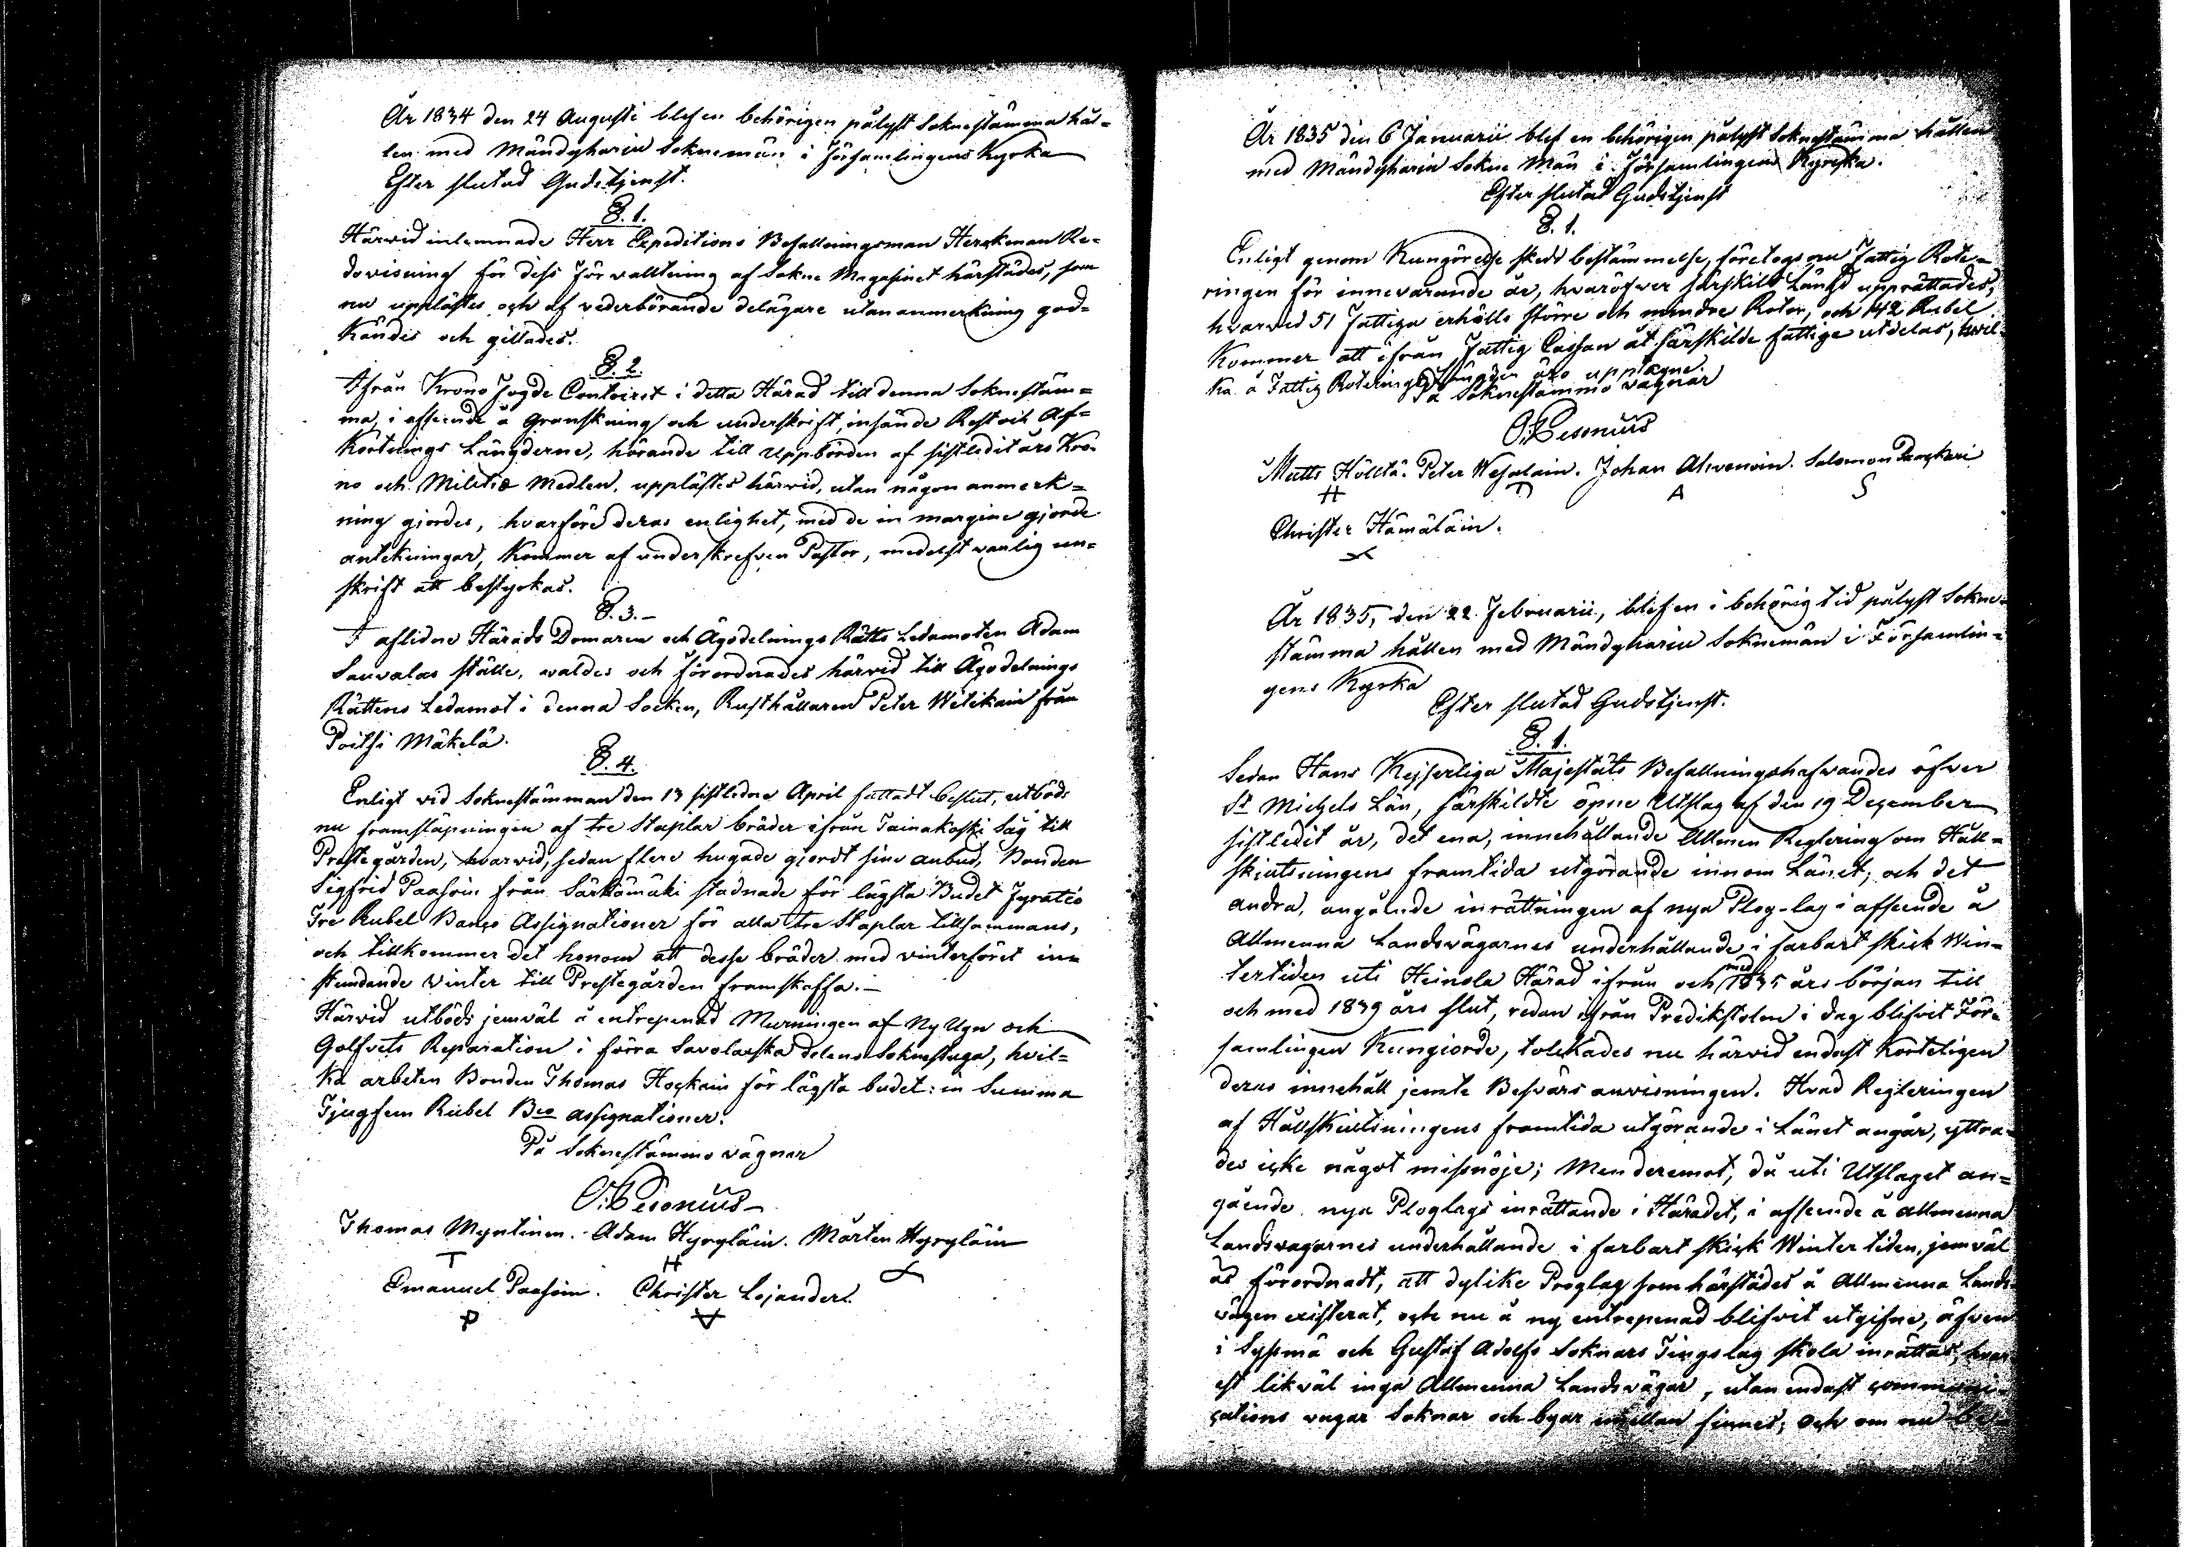 År 1834 den 24 Augusti blef en behörigen pålyst Soknestämma hål-
len med Mändyharju Soknemän i Församlingens Kyrka
Efter slutad Gudstjenst.
§. 1.
Härvid inlemnade Herr Expeditions Befallningsman Herckman Re-
dovisning för dess förvalltning af Sokne Magasinet härstädes, som
nu upplästes och af vederbörande delägare utan anmerkning god-
kändes och gillades.
§. 2.
Ifrån Krono Fogde Contoiret i detta Härad till denna Soknestäm-
ma, i afseende å Granskning och underskrift, insände Rest och Af-
kortnings Längderne, hörande till uppbörden af sistledit års Kro-
no och Militiæ Medlen, upplästes härvid, utan någon anmerk-
ning gjordes, hvarföre deras enlighet, med de in margine gjorde
antekningar, kommer af underskrefven Pastor, medelst vanlig un-
skrift att bestyrkas.
§. 3.-
I aflidne Härads Domaren och Ägodelnings Rätts Ledamoten Adam
Sauvalas ställe, valdes och förordnades härvid till Ägodelnings
Rättens Ledamot i denna Socken, Rusthållaren Peter Witikain från
Poitsi Mäkelä.
§. 4.
Enligt vid Soknestämman den 13 sistledne April fattadt beslut, utböds
nu framsläpningen af tre Staplar bräder ifrån Tainakoski Såg till
Prestegården, hvarvid, sedan flere hugade gjordt sine anbud, Bonden
Sigfrid Paasoin från Särkämäki stadnade för lägsta Budet Fyratio
Tre Rubel Banco Assignationer för alla tre Staplar tillsammans,
och tillkommer det honom att desse bräder med vinterföret in-
stundande Vinter till Prestegården framskaffa.-
Härvid utböds jemväl å entrepenad Murningen af Ny Ugn och
Golfvets Reparation i förra Savolaxska delens Soknestuga, hvil-
ka arbeten Bonden Thomas Hockain för lägsta budet: in Summa
Tjugfem Rubel Bco assignationer.
På Soknestämmo vägnar
O: Pesonius
Thomas Myntinen. Adam Hyryläin. Mårten Hyryläin
T H
Emanuel Paasoin. Christer Lojander.
P
År 1835 den 6 Januarii blef en behörigen pålyst Soknestämma hållen
med Mändyharju Sokne Män i Församlingens Kyrka.
Efter slutad Gudstjenst
§. 1.
Enligt genom Kungörelse skedt bestämmelse, företogs nu Fattig Rote-
ringen för innevarande år, hvaröfwer särskild Längd upprättades,
hvarvid 51 Fattiga erhöllo större och mindre Rotar, och 142 Rubel
kommer att ifrån Fattig Cassan åt särskilde fattige utdelas, hvil-
ka å Fattig Roterings Längden äro upptagne.
På Soknestämmo vägnar
O: Pesonius
Matts Hölttä. Peter Wesalain. Johan Ahvonoin. Salomon
H A S
Christer Hämäläin.
År 1835, den 22 Februarii, blef en i behörig tid pålyst Sokne-
stämma hållen med Mändyharju Soknemän i Församlin-
gens Kyrka
Efter slutad Gudstjenst.
§. 1.
Sedan Hans Kejserliga Majestäts Befallningshafvandes öfver
St Michels Län, särskildte öpne Utslag af den 19 December
sistledit år, det ena, innehållande Allmen Reglering om Håll-
skjutsningens framtida utgörande innom Länet; och det
andra, angående inrättningen af nya Plog-lag i afseende å
Allmenna Landsvägarnes underhållande i farbart skick Win-
tertiden uti Heinola Härad ifrån och med 1835 års början till
och med 1839 års slut, redan ifrån Predikstolen i dag blifvit För-
samlingen Kungiorde, tolckades nu härvid endast korteligen
deras innehåll jemte Besvärs anvisningen. Hvad Regleringen
af Hållskiutsningens framtida utgörande i Länet angår, yttra-
des icke något missnöje; Men deremot, då uti Utslaget an-
gående nya Ploglags inrättande i Häradet, i afseende å Allmenna
Landsvägarnes underhållande i farbart skick Winter tiden, jemväl
är förordnadt, att dylike Ploglag som härstädes å Allmenna Lands
vägen existerat, och nu å ny entrepenad blifvit utgifne, äfven
i Sysmä och Gustaf Adolfs Soknars Tingslag skola inrättas, hvar-
est likväl inga Allmenna Landsvägar, utan endast communi-
cations vägar Soknar och byar emellan finnes; och om nu